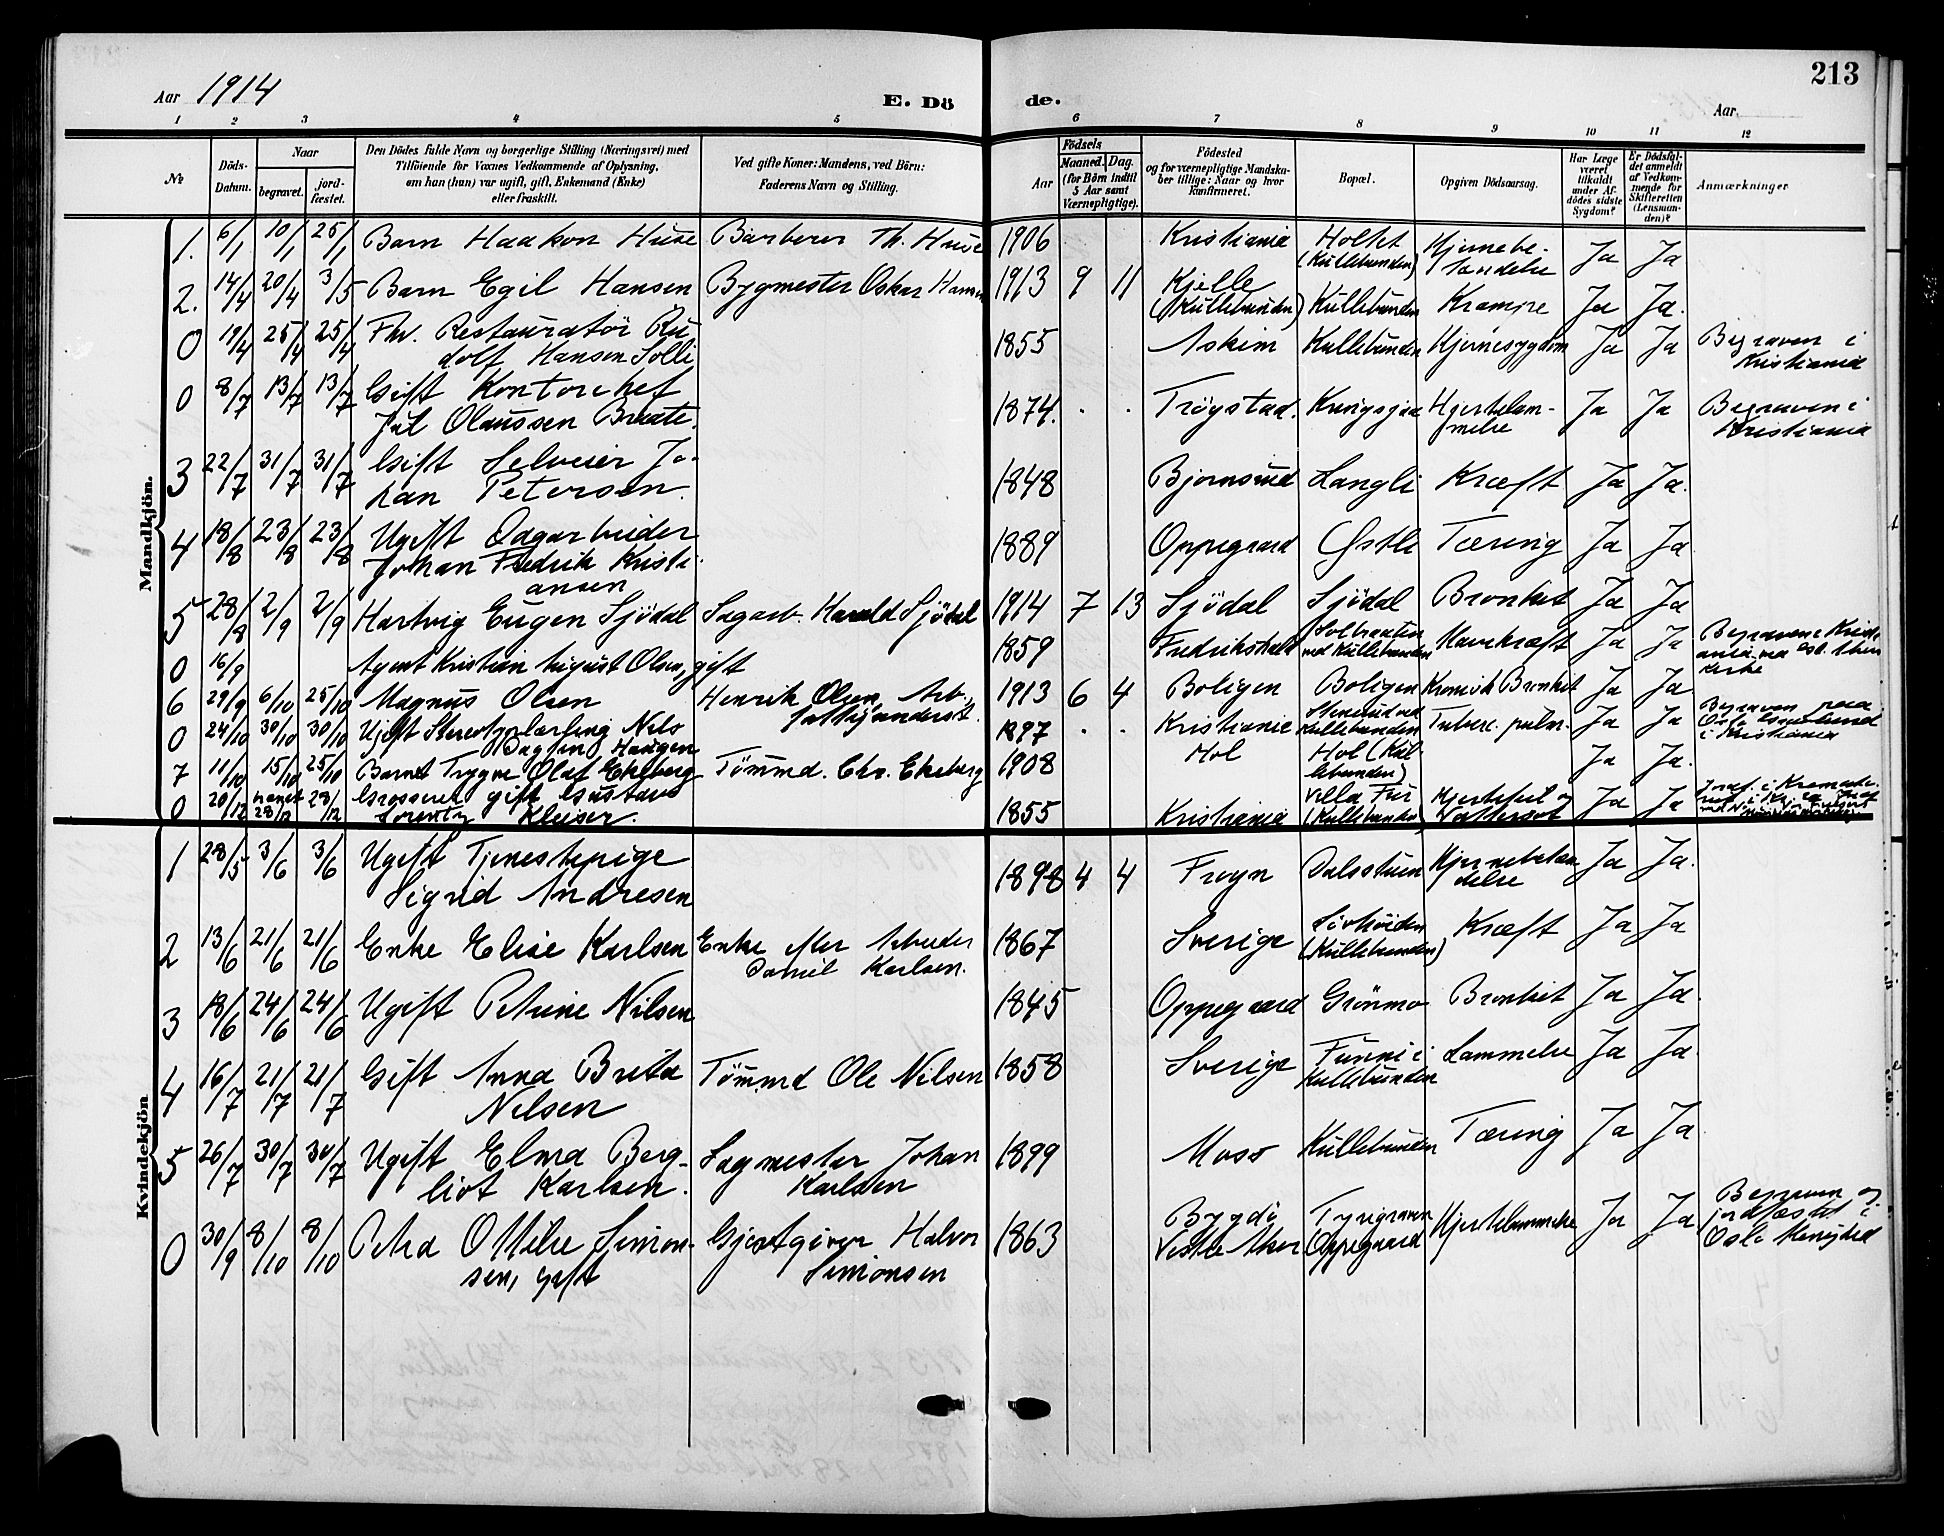 Aar 1914
E. Dö de.
213
Aar
1 2 3 4 5 6 7 8 9 10 11 12
№
Döds-Datum.
Naar
begravet.
jord-fæstet.
Den Dödes fulde Navn og borgerlige Stilling (Næringsvei) med
Tilföiende for Voxnes Vedkommende af Oplysning,
om han (hun) var ugift, gift, Enkemand (Enke)
eller fraskilt.
Ved gifte Koner: Mandens, ved Börn:
Faderens Navn og Stilling.
Födsels
Aar
Maaned. Dag.
(for Börn indtil
5 Aar samt
Værnepligtige).
Födested
og for værnepligtige Mandska-
ber tillige: Naar og hvor
konfirmeret.
Bopæl.
Opgiven Dödsaarsag.
Har Læge
været
tilkaldt
under Af-
dödes sidste
Sygdom?
Er Dödsfal-
det anmeldt
af Vedkom-
mende for
Skifteretten
(Lensman-
den)?
Anmærkninger
Mandkjön.
1. 6/1 10/1 25/1 Barn Haakon Huse Barberer Th. Huse 1906 Kristiania Holtet Hjernebe-
(Kullebunden) tændelse Ja Ja
2. 14/4 20/4 3/5 Barn Egil Hansen Bygmester Oskar Hansen 1913 9 11 Kjelle
(Kullebunden) Kullebunden Krampe Ja Ja.
0 19/4 25/4 25/4 Fhv. Restauratör Ru-
dolf Hansen Solli 1855 Askim Kullebunden Hjernesygdom Ja Ja Begraven i
Kristiania
0 8/7 13/7 13/7 Gift Kontorchef
Jul Olaussen Braate. 1874. Trøgstad. Hjertelam-
melse Ja Ja Begraven i
Kristiania
3 22/7 31/7 31/7 Gift Selveier Jo-
han Petersen. 1848 Langli Kræft Ja Ja.
4 18/8 23/8 23/8 Ugift Dagarbeider
Johan Fredrik Kristi-
ansen 1889 Oppegaard Østli Tæring Ja Ja
5 28/8 2/9 2/9 Hartvig Eugen Sjödal Sagarb. Harald Sjödal 1914 7 13 Sjödal Sjödal Bronkit Ja Ja
0 16/9 Agent Kristian August Olsen, gift 1859 Fredrikshald Solbraaten
ved Kullebunden Mavekræft Ja Ja Begraven i Kristi-
ania
kirke
6 29/9 6/10 25/10 Magnus Olsen Henrik Olsen, Arb.,
fattigunderst. 1913 6 4 Boligen Boligen Kronisk Bronkit Ja Ja
0 24/10 30/10 30/10 Ugift Stereotyplærling Nils
Dagfin Haugen 1897 Kristiania
Kullebunden Tuberc. pulm. Ja Ja Begraven paa
i Kristiania
7 11/10 15/10 25/10 Barnet Trygve Olaf Ekeberg Tömmd. Chr. Ekeberg 1908 Hol Hol (Kul-
lebunden) Ja Ja.
0 20/12 28/12 28/12 Grosserer gift Gustav
Lorentz Kleiser. 1855 Kristiania Villa Fur
(Kullebunden) Hjertefeil og
Vattersot Ja Ja
Kvindekjön
1 28/5 3/6 3/6 Ugift Tjenestepige
Sigrid Andresen 1898 4 4 Frogn Dalsstuen Hjernebetæn-
delse Ja Ja.
2 13/6 21/6 21/6 Enke Elise Karlsen Enke efter Arbeider
Daniel Karlsen. 1867 Sverige
(Kullebunden) Kræft Ja Ja
3 18/6 24/6 24/6 Ugift Petrine Nilsen 1845 Oppegaard Grönmo Bronkit Ja Ja.
4 16/7 21/7 21/7 Gift Anna Brita
Nilsen Tömmd Ole Nilsen 1858 Sverige
Kullebunden Lammelse Ja Ja.
5 26/7 30/7 30/7 Ugift Elma Berg-
liot Karlsen. Sagmester Johan
Karlsen 1899 Moss Kullebunden Tæring Ja Ja.
0 30/9 8/10 8/10 Petra Ottilie Simon-
sen, gift Gjestgiver Halvor
Simonsen 1863 Bygdö
Vestre Aker Tyrigraven
Oppegaard Hjertelammelse Ja Ja Begraven og
jordfæstet i
Oslo Menighed